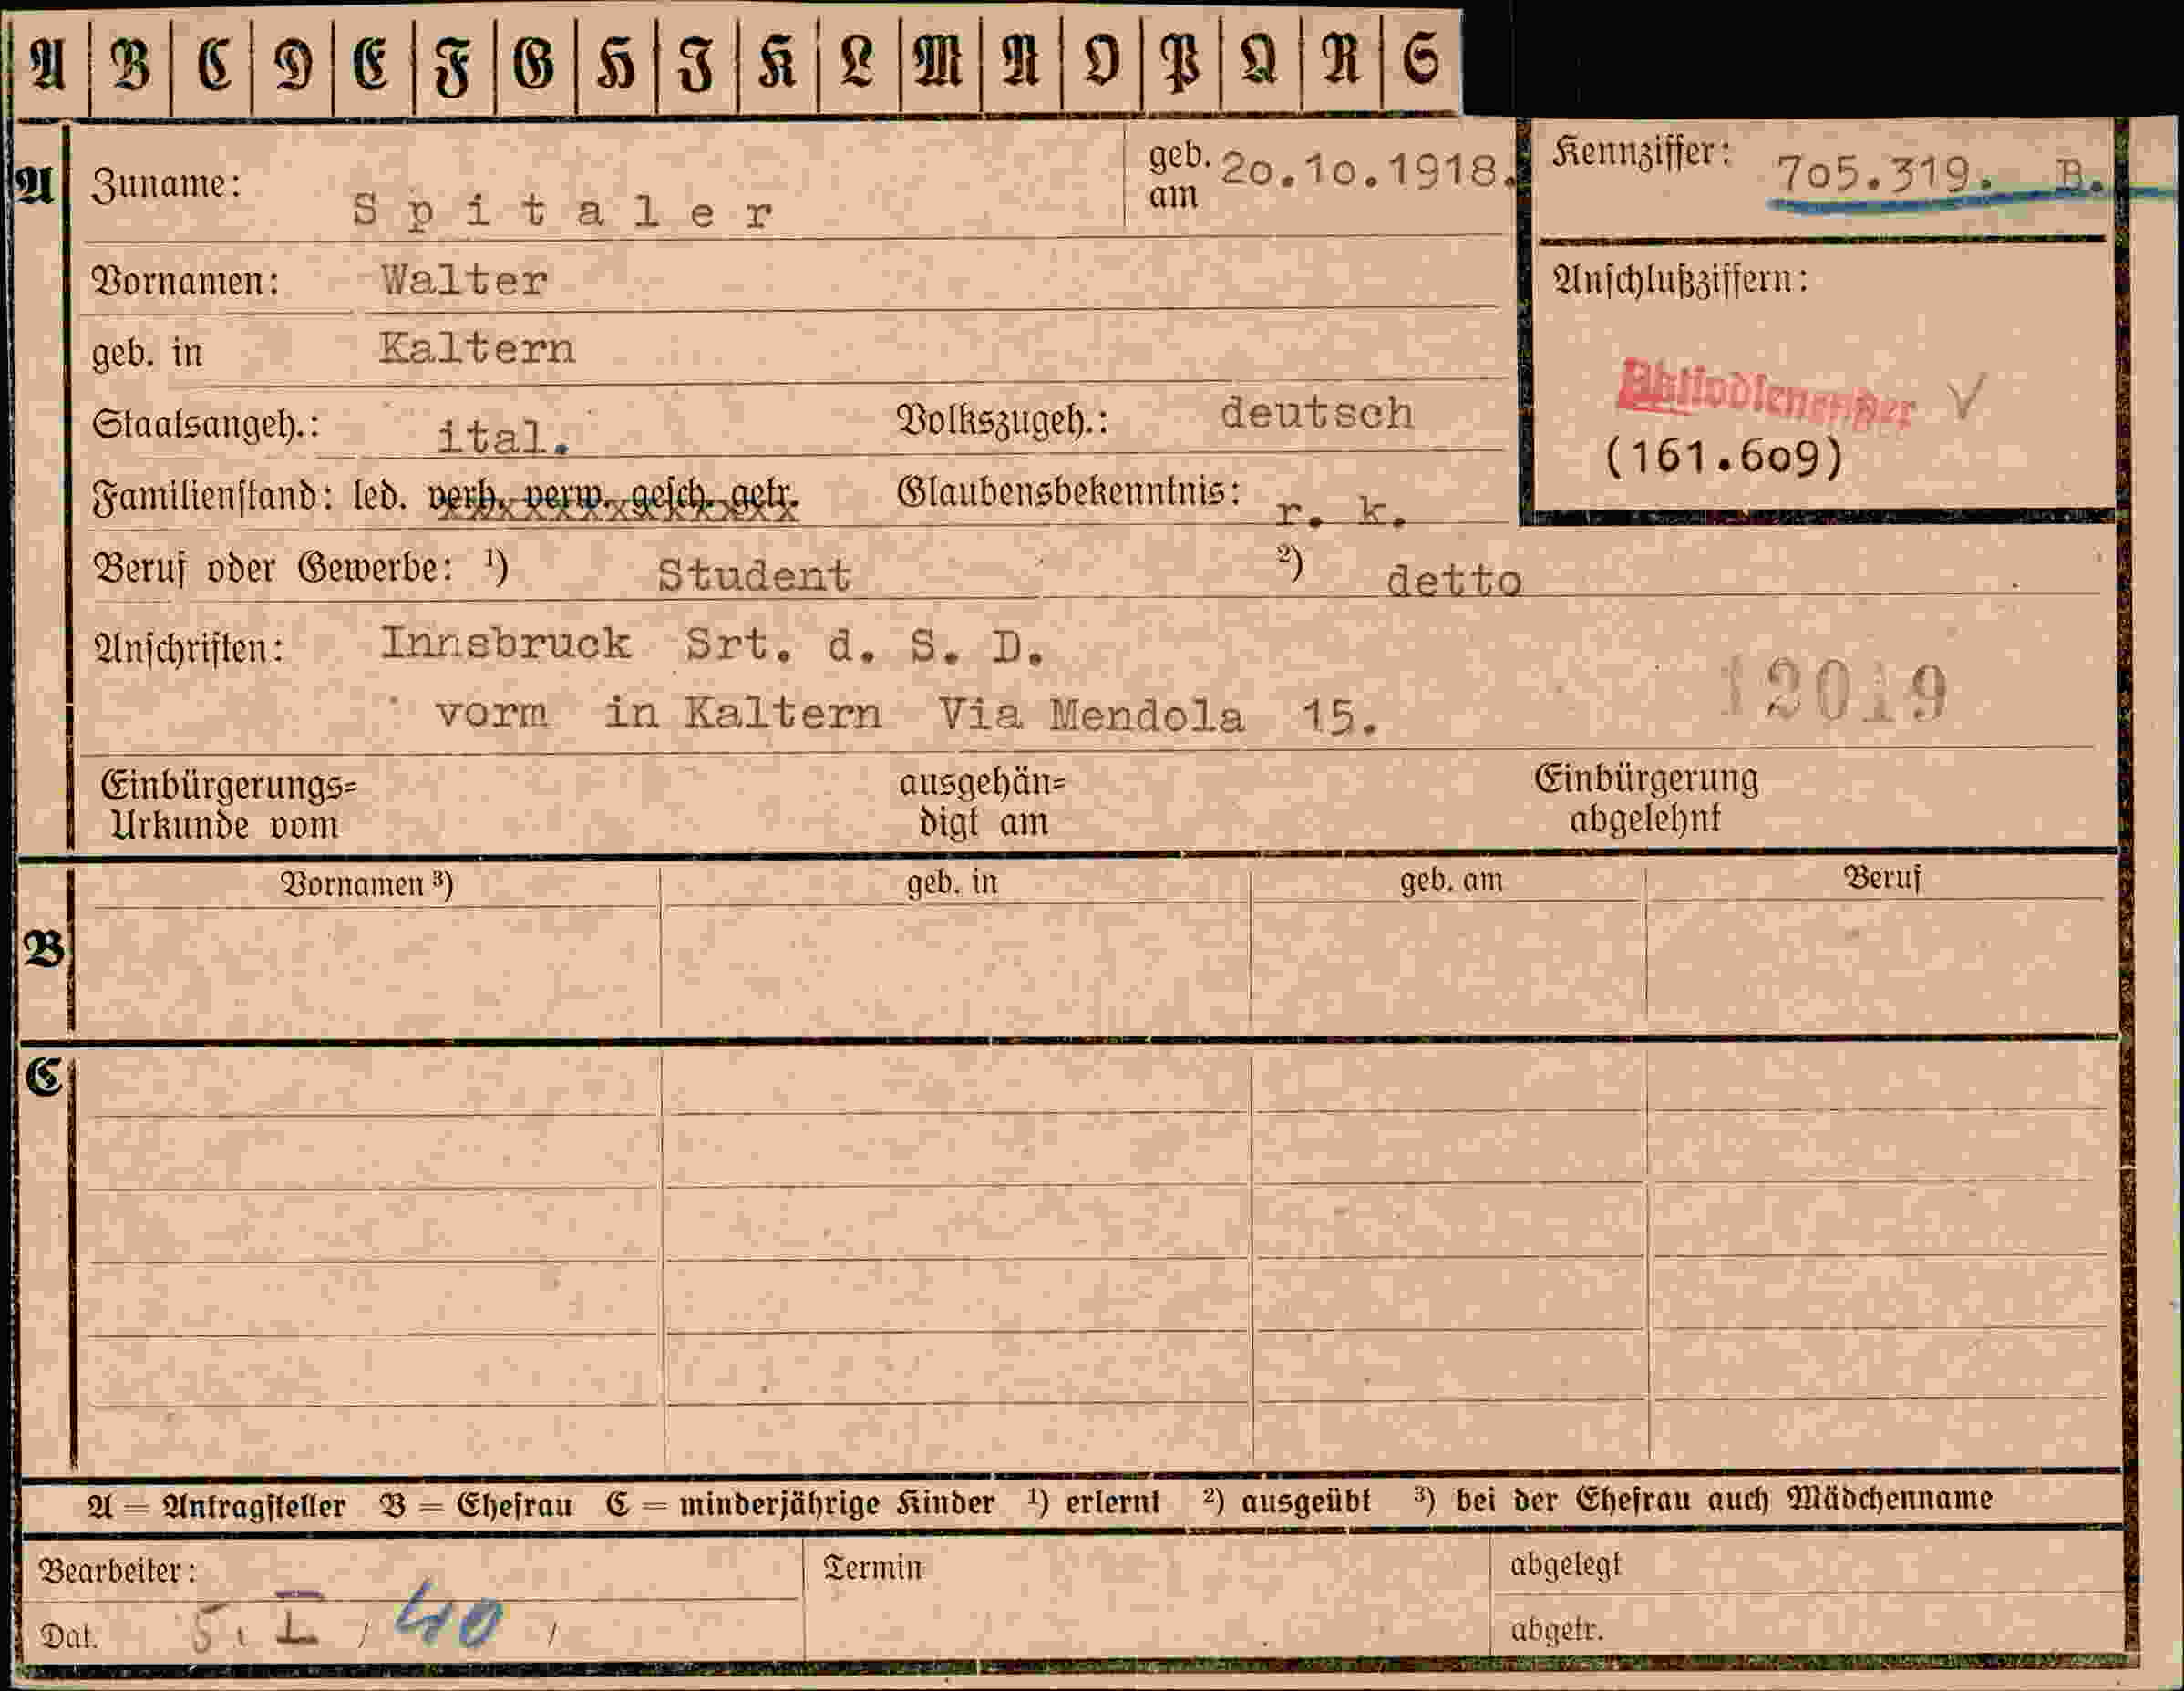 A B C D E F G H I K L M N O P Q R S
A Zuname: Spitaler geb. am 20.10.1918. Kennziffer: 705.319. B.
Vornamen: Walter Anschlußziffern:
geb. in Kaltern
Staatsangeh.: ital. Volkszugeh.: deutsch
(161.609)
Familienstand: led. verh. verw. gesch. getr. Glaubensbekenntnis: r. k.
Beruf oder Gewerbe: ¹) Student ²) detto
Anschriften: Innsbruck Srt. d. S. D.
vorm in Kaltern Via Mendola 15. 12019
Einbürgerungs= ausgehän= Einbürgerung
Urkunde vom digt am abgelehnt
Vornamen ³) geb. in geb. am Beruf
B
C
A = Antragsteller B = Ehefrau C = minderjährige Kinder ¹) erlernt ²) ausgeübt ³) bei der Ehefrau auch Mädchenname
Bearbeiter: Termin abgelegt
Dat. 5. I / 40 / abgetr.